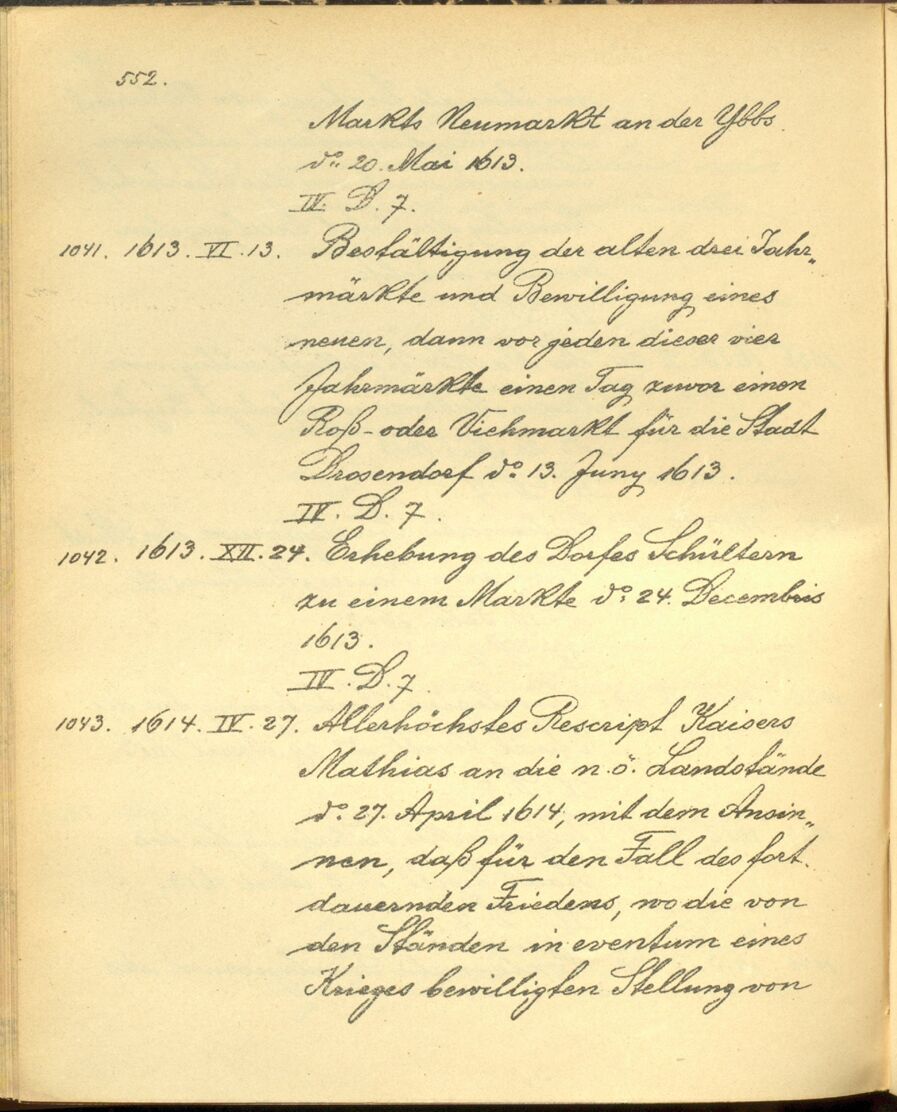 552.
Markts Neumarkt an der Ybbs.
do: 20. Mai 1613.
IV. D. 7.
1041. 1613. VI. 13. Bestättigung der alten drei Jahr„
märkte und Bewilligung eines
neuen, dann vor jeden dieser vier
Jahrmärkte einen Tag zuvor einen
Roß- oder Viehmarkt für die Stadt
Drosendorf do: 13. Juny 1613.
IV. D. 7.
1042. 1613. XII. 24. Erhebung des Dorfes Schültern
zu einem Markte do: 24. Decembris
1613.
IV. D. 7
1043. 1614. IV. 27. Allerhöchstes Rescript Kaisers
Mathias an die n. ö. Landstände
do: 27. April 1614, mit dem Ansin„
nen, daß für den Fall des fort.
dauernden Friedens, wo die von
den Ständen in eventum eines
Krieges bewilligten Stellung von